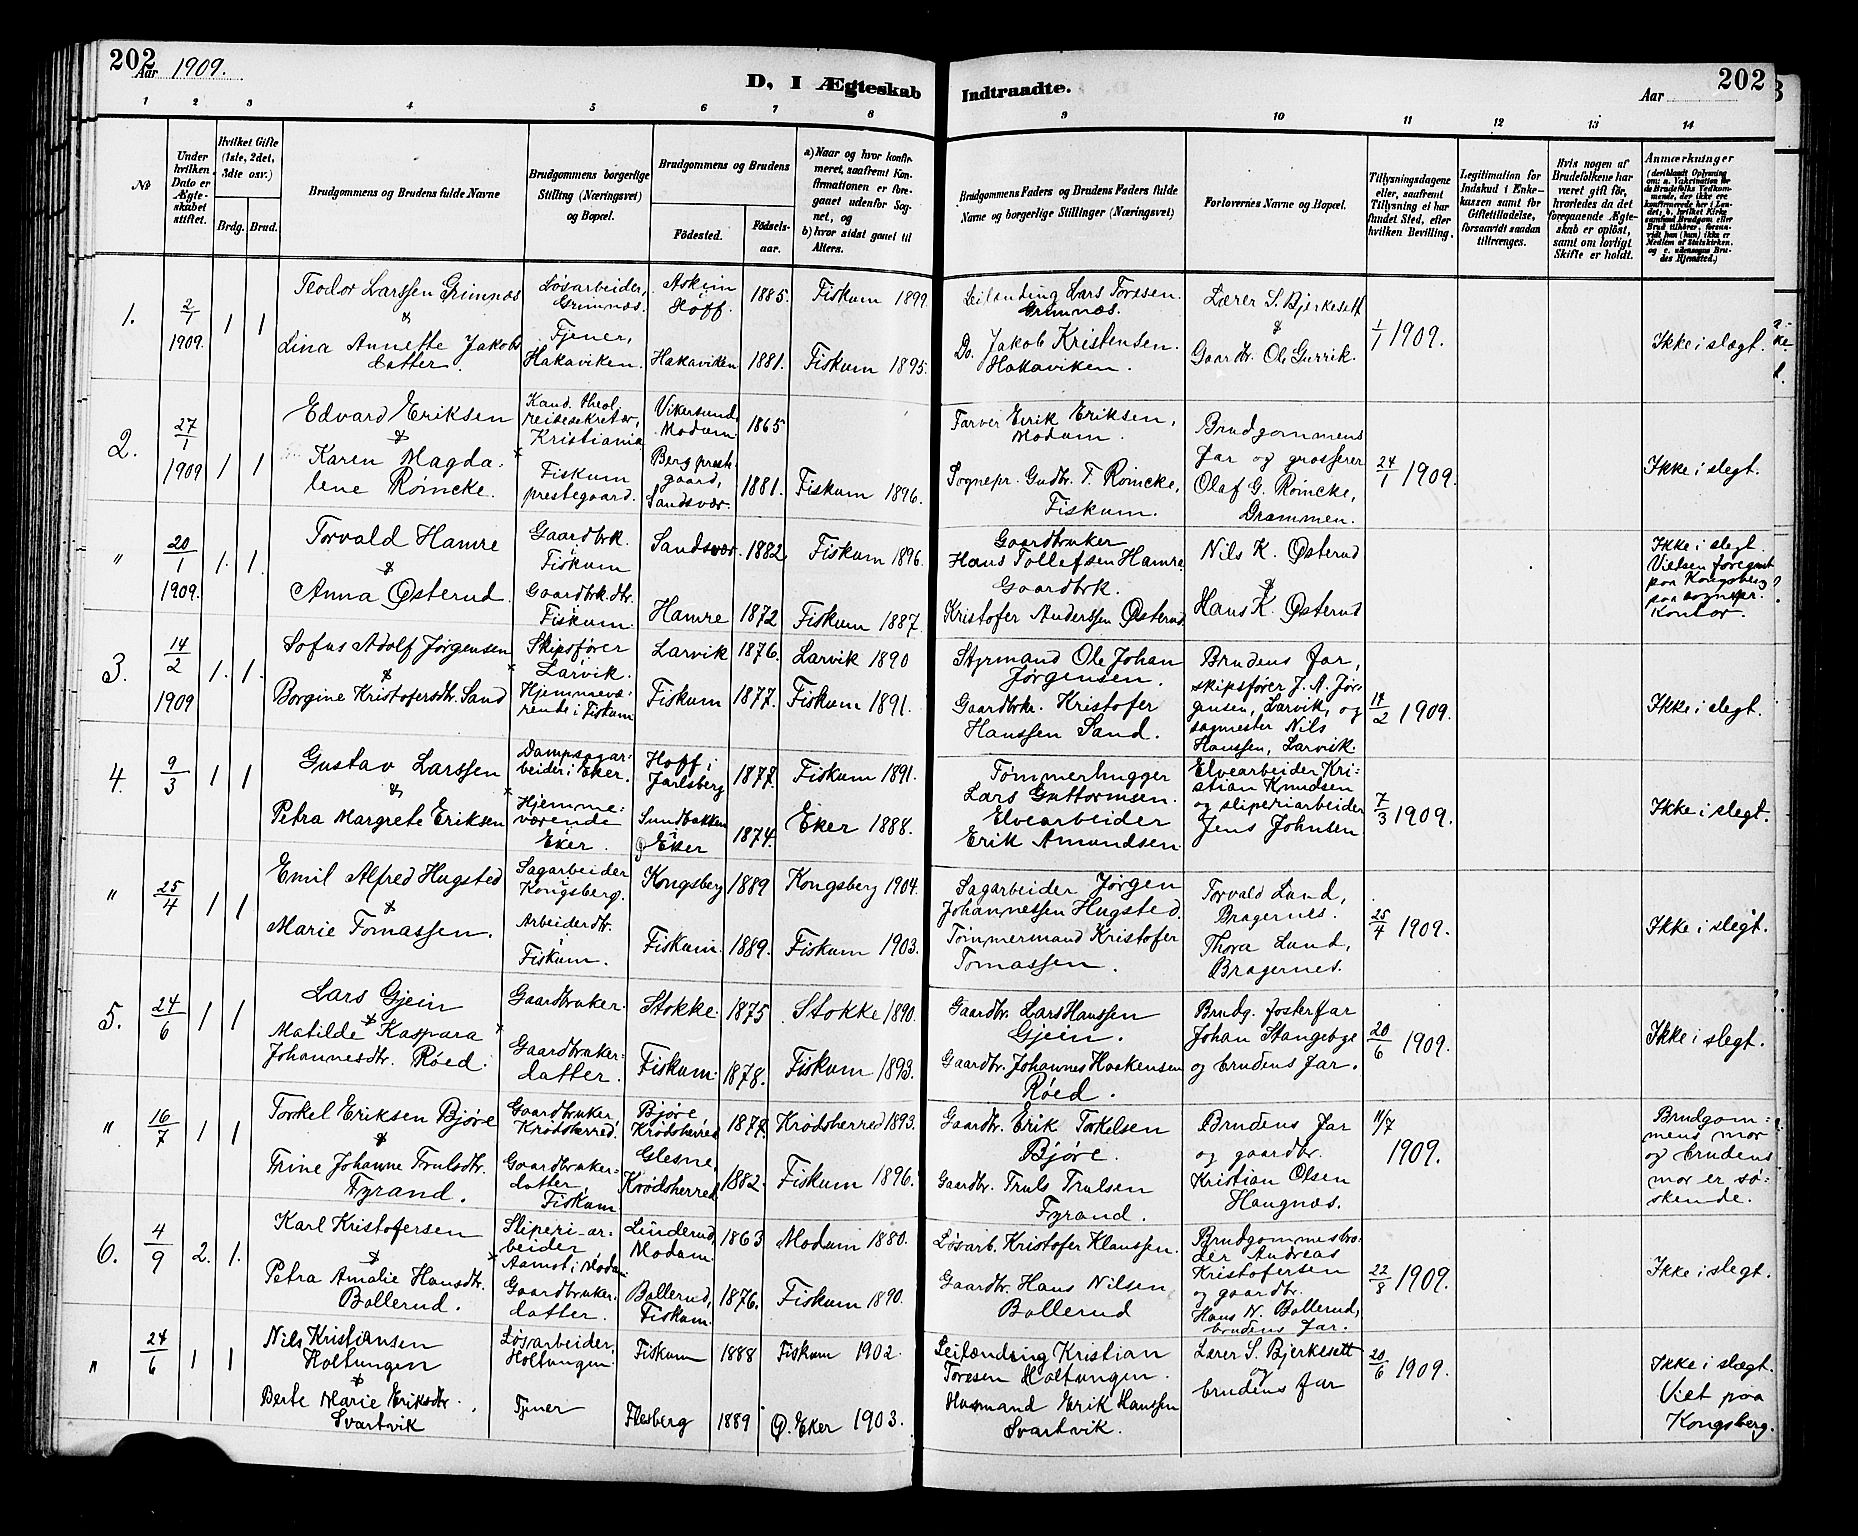 202
Aar 1909.
D, I Ægteskab Indtraadte.
Aar
202
1 2 3 4 5 6 7 8 9 10 11 12 13 14
№
Under hvilken Dato er Ægteskabet stiftet.
Hvilket Gifte (1ste, 2det, 3die osv.)
Brdg. Brud.
Brudgommens og Brudens fulde Navne
Brudgommens borgerlige Stilling (Næringsvei) og Bopæl.
Brudgommens og Brudens
Födested.
Födselsaar.
a) Naar og hvor konfirmeret, saafremt Konfirmationen er foregaaet udenfor Sognet, og
b) hvor sidst gaaet til Alters.
Brudgommens Faders og Brudens Faders fulde Navne og borgerlige Stillinger (Næringsvei)
Forlovernes Navne og Bopæl.
Tillysningsdagene eller, saafremt Tillysning ei har fundet Sted, efter hvilken Bevilling.
Legitimation for Indskud i Enkekassen samt for Giftetilladelse, forsaavidt saadan tiltrænges.
Hvis nogen af Brudefolkene har været gift før, hvorledes da det foregaaende Ægteskab er oplöst, samt om lovligt Skifte er holdt.
Anmærkninger
1. 2/1 1909. 1 1
Teodor Larssen Grimnæs
&
Lina Annette Jakobsdatter.
Løsarbeider, Grimnæs.
Tjener, Hakaviken.
Askim Høff. 1885. Fiskum 1899.
Hakaviken 1881. Fiskum 1895.
Leilending Lars Toresen. Grimnæs.
Do. Jakob Kristensen. Hakaviken.
Lærer S. Bjerkesett
&
Gaardbr. Ole Gurrik.
1/1 1909.
Ikke i slægt.
2. 27/1 1909 1 1
Edvard Eriksen
&
Karen Magdalene Röincke.
Kand. theol, reisesekretær, Kristiania
Fiskum prestegaard.
Vikersund, Modum. 1865
Berg prestegaard, Sandsvær. 1881. Fiskum 1896.
Farver Erik Eriksen, Modum.
Sognepr. Gudbr. T. Röincke, Fiskum.
Brudgommens far og grosserer Olaf G. Röincke, Drammen.
24/1 1909.
Ikke i slegt.
" 20/1 1909. 1. 1.
Torvald Hamre
&
Anna Østerud.
Gaardbrk. Fiskum
Gaardbrk.dtr. Fiskum.
Sandsvær. 1882. Fiskum 1896.
Hamre 1872 Fiskum 1887.
Gaardbruker Hans Tollefsen Hamre.
Gaardbrk. Kristofer Anderssen Østerud
Nils K. Østerud
&
Hans K. Østerud
Ikke i slegt. Vielsen foregaat paa Kongsberg paa sognepr. kontor.
3. 14/2 1909 1. 1.
Sofus Adolf Jørgensen
&
Borgine Kristofersdtr. Sand
Skipsfører Larvik.
Hjemmeværende i Fiskum
Larvik 1876. Larvik 1890
Fiskum 1877. Fiskum 1891.
Styrmand Ole Johan Jørgensen.
Gaardbrkr. Kristofer Hanssen Sand.
Brudens far, skipsfører J. A. Jørgensen, Larvik, og sagmester Nils Hanssen, Larvik.
14/2 1909.
Ikke i slegt.
4. 9/3 1 1
Gustav Larssen
&
Petra Margrete Eriksen
Dampsagarbeider i Eker.
Hjemmeværende Eker.
Hoff i Jarlsberg 1877. Fiskum 1891.
Sundbakken Ø Eker 1874. Eker 1888.
Tømmerhugger Lars Guttormsen.
Elvearbeider Erik Amundsen
Elvearbeider Kristian Knudsen og sliperiarbeider Jens Johnsen
7/3 1909.
Ikke i slegt.
" 25/4 1 1
Emil Alfred Hugsted
&
Marie Tomassen.
Sagarbeider Kongsberg.
Arbeiderdtr. Fiskum.
Kongsberg 1889 Kongsberg 1904.
Fiskum. 1889. Fiskum 1903.
Sagarbeider Jørgen Johannessen Hugsted.
Tømmermand Kristofer Tomassen.
Torvald Lund, Bragernes.
Thora Lund, Bragernes.
25/4 1909.
Ikke i slegt.
5. 24/6 1 1
Lars Gjein
&
Matilde Kaspara Johannesdtr. Röed.
Gaardbruker.
Gaardbrukerdatter.
Stokke. 1875 Stokke 1890.
Fiskum. 1878. Fiskum 1893.
Gaardbr. Lars Hanssen Gjein.
Gaardbr. Johannes Haakensen Röed.
Brudg. fosterfar Johan Stangebye og brudens far.
20/6 1909.
Ikke i slegt.
" 16/7 1 1
Torkel Eriksen Björe
&
Trine Johanne Trulsdtr. Fyrand.
Gaardbruker Krödsherred.
Gaardbrukerdatter, Fiskum
Björe, Krödsherred 1877. Krödsherred 1893.
Glesne, Krödsherred 1882. Fiskum 1896.
Gaardbr. Erik Torkelsen Björe.
Gaardbr. Truls Trulsen Fyrand.
Brudens far og gaardbr. Kristian Olsen Haugnæs.
11/7 1909.
Brudgommens mor og brudens mor er søskende.
6. 4/9 2. 1.
Karl Kristofersen
&
Petra Amalie Hansdtr. Bollerud.
Sliperi-arbeider Aamot i Modum.
Gaardbrukerdatter.
Linderud, Modum 1863 Modum 1880.
Bollerud, Fiskum. 1876. Fiskum 1890.
Løsarb. Kristofer Klaussen.
Gaardbr. Hans Nilsen Bollerud
Brudgommesbroder Andreas Kristofersen og gaardbr. Hans N. Bollerud, brudens far.
22/8 1909.
Ikke i slegt.
" 24/6 1 1
Nils Kristiansen Holtungen
&
Berte Marie Eriksdtr. Svartvik
Løsarbeider, Holtungen.
Tjener
Fiskum 1888 Fiskum 1902.
Flesberg 1889 Ø. Eker 1903.
Leilænding Kristian Toresen Holtungen.
Husmand Erik Hanssen Svartvik.
Lærer S. Bjerkesett og brudens far
20/6 1909.
Ikke i slægt. Viet paa Kongsberg.